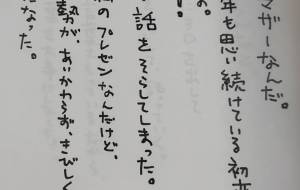 マザーなんだ。
年も思い続けている初
の。
!
話をそらしてしまった。
のプレゼンなんだけど、
勢が、あいかわらず、きびしく
なった。